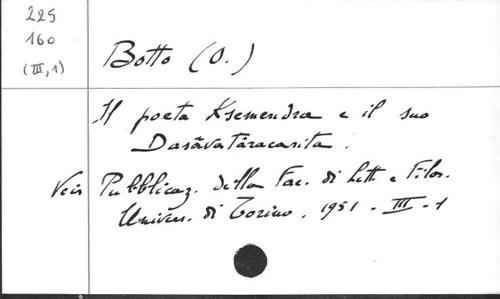 225
160
(III, 1)
Botto (O.)
Il poeta Ksemendra e il suo
Dasāvatāracarita.
Veir Pubblicaz. della Fac. di Lett e Filos.
Univers. di Torino. 1951 - III - 1